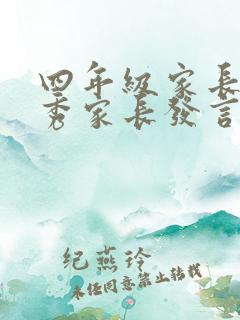 四年级家长
秀家长發言
纪燕玲
未任同意禁止转载